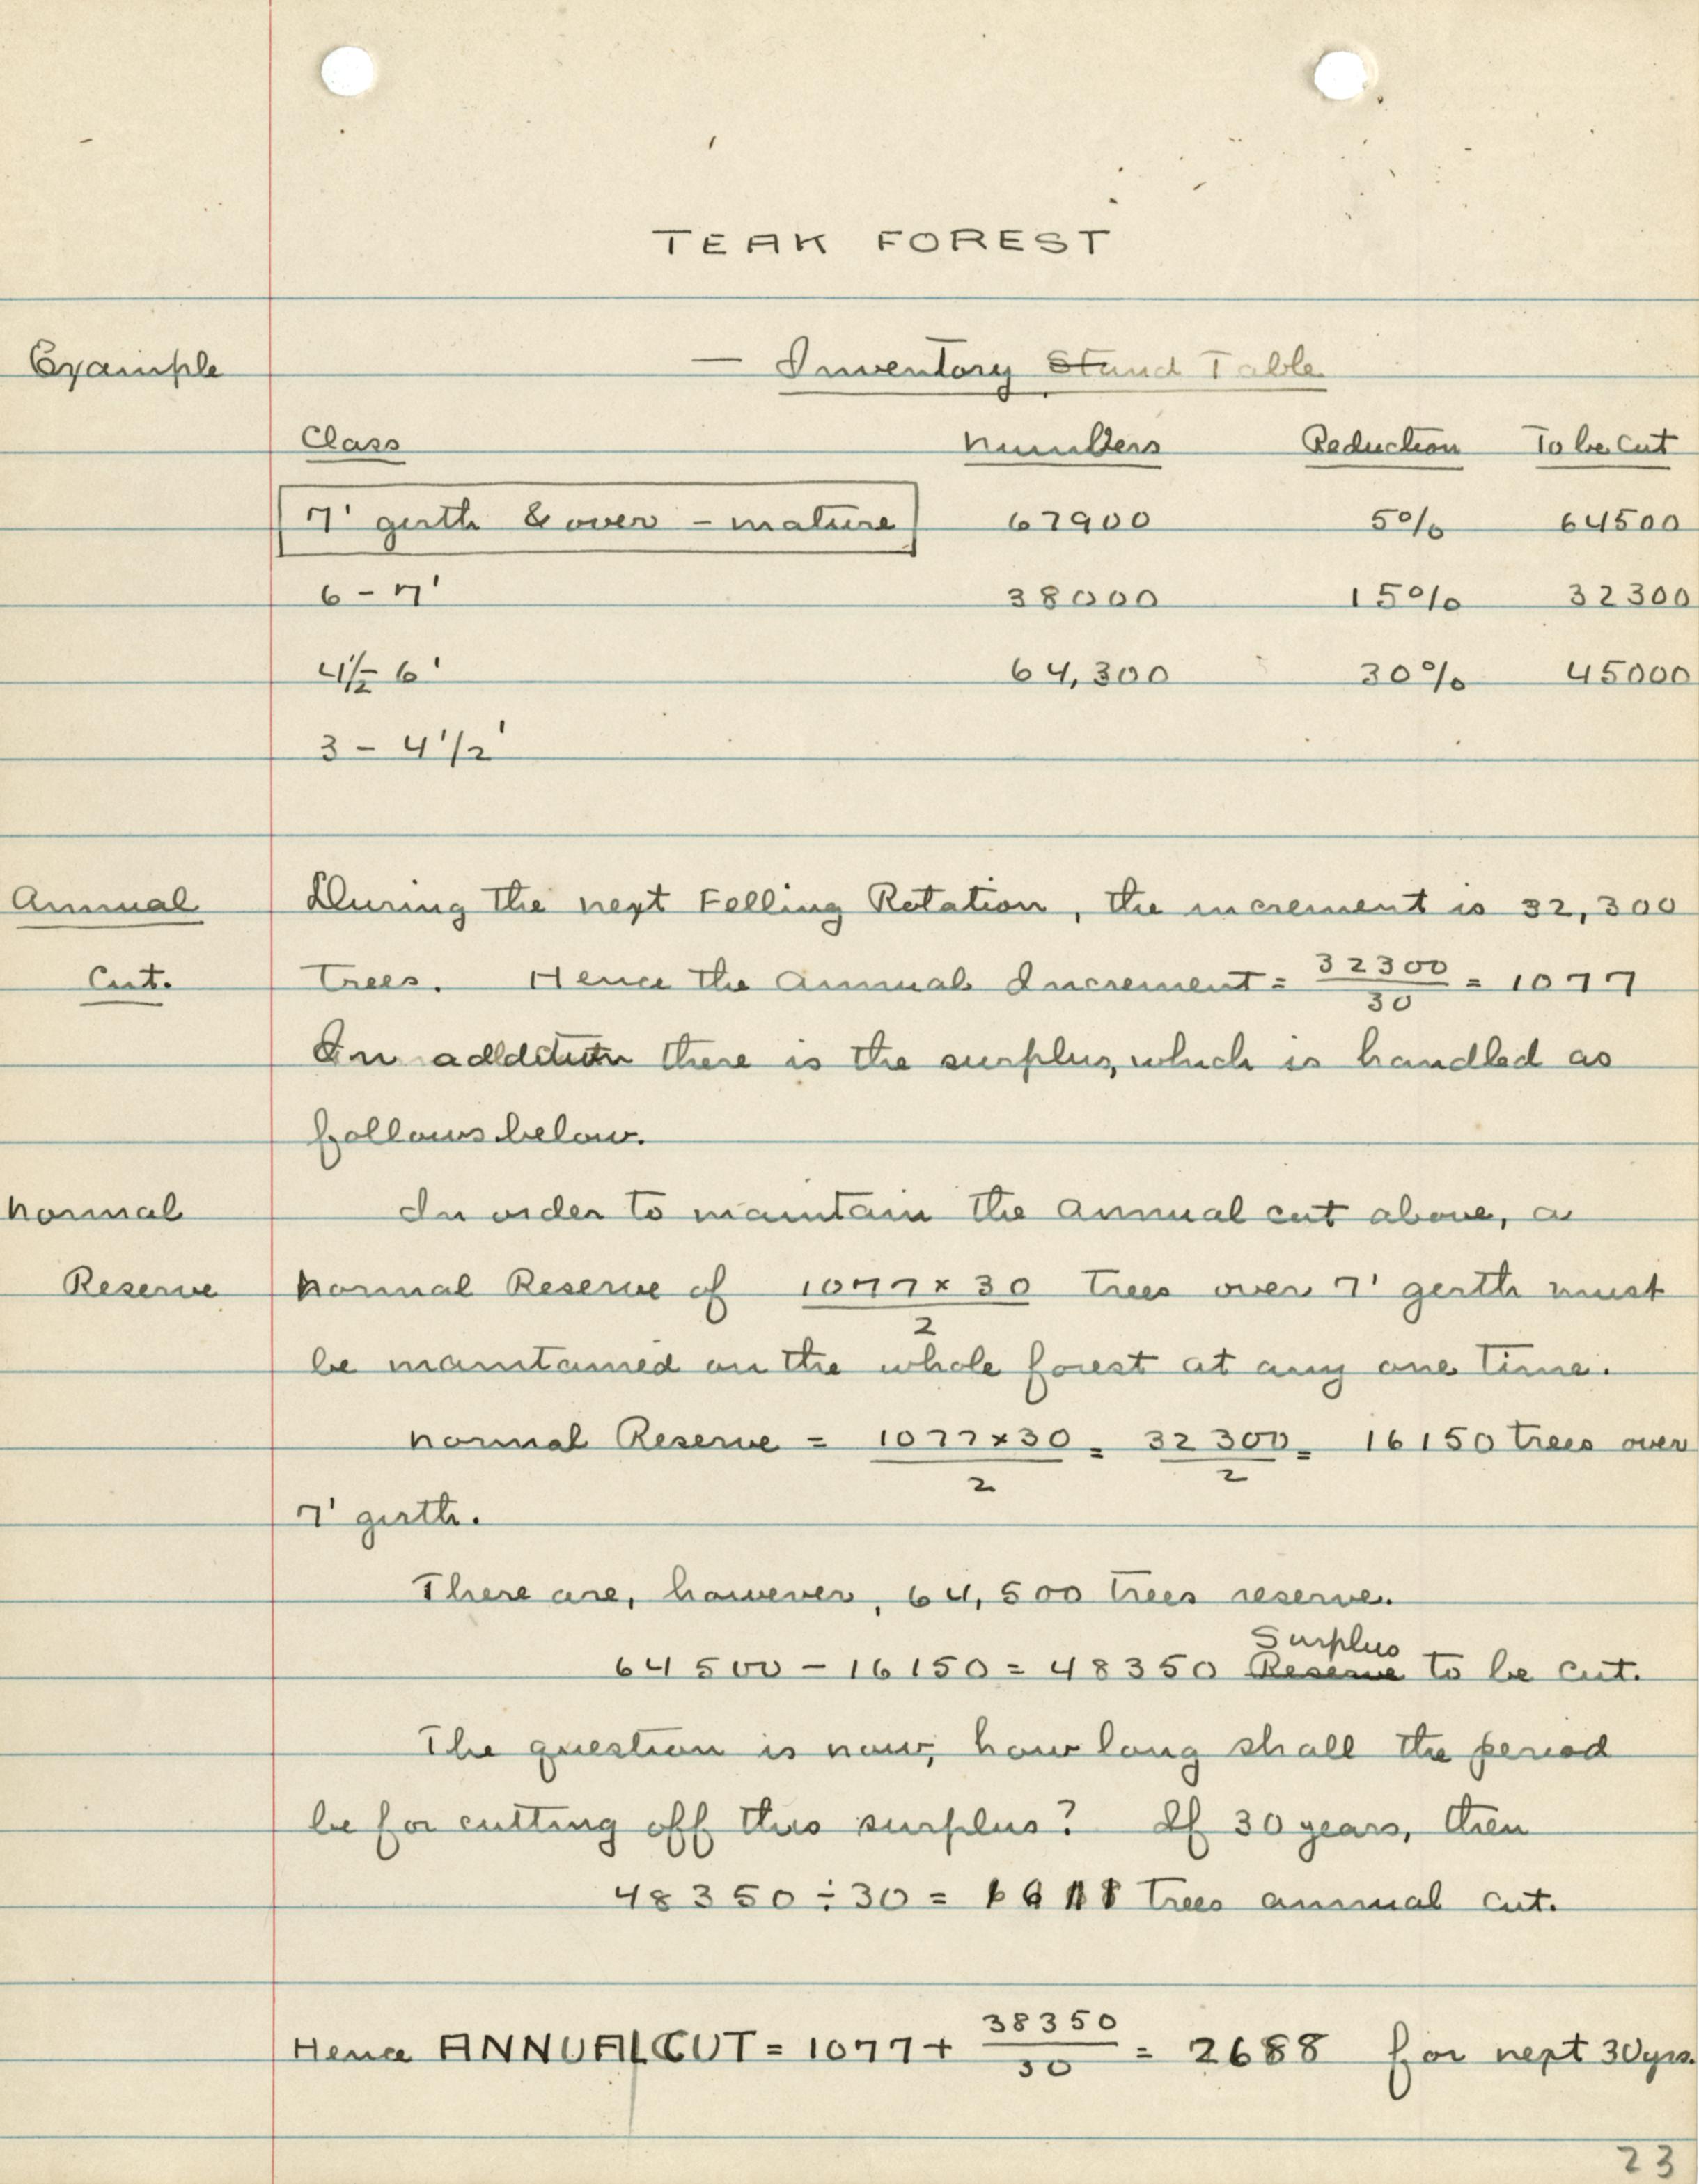 TEAK FOREST
Example — Inventory Stand Table
Class Numbers Reduction To be Cut
7' girth & over - mature 67900 5% 64500
6 - 7' 38000 15% 32300
4½ - 6' 64,300 30% 45000
3 - 4 1/2'
Annual During the next Felling Rotation, the increment is 32,300
Cut. Trees. Hence the Annual Increment = 32300/30 = 1077
In addition there is the surplus, which is handled as
follows below.
Normal In order to maintain the annual cut above, a
Reserve Normal Reserve of 1077 x 30 / 2 trees over 7' girth must
be maintained on the whole forest at any one time.
Normal Reserve = 1077 x 30 / 2 = 32 300 / 2 = 16150 trees over
7' girth.
There are, however, 64,500 trees reserve.
Surplus
64500 - 16150 = 48350 Reserve to be cut.
The question is now, how long shall the period
be for cutting off this surplus? If 30 years, then
48350 ÷ 30 = trees annual cut.
Hence ANNUAL CUT = 1077 + 38350/30 = 2688 for next 30 yrs.
23